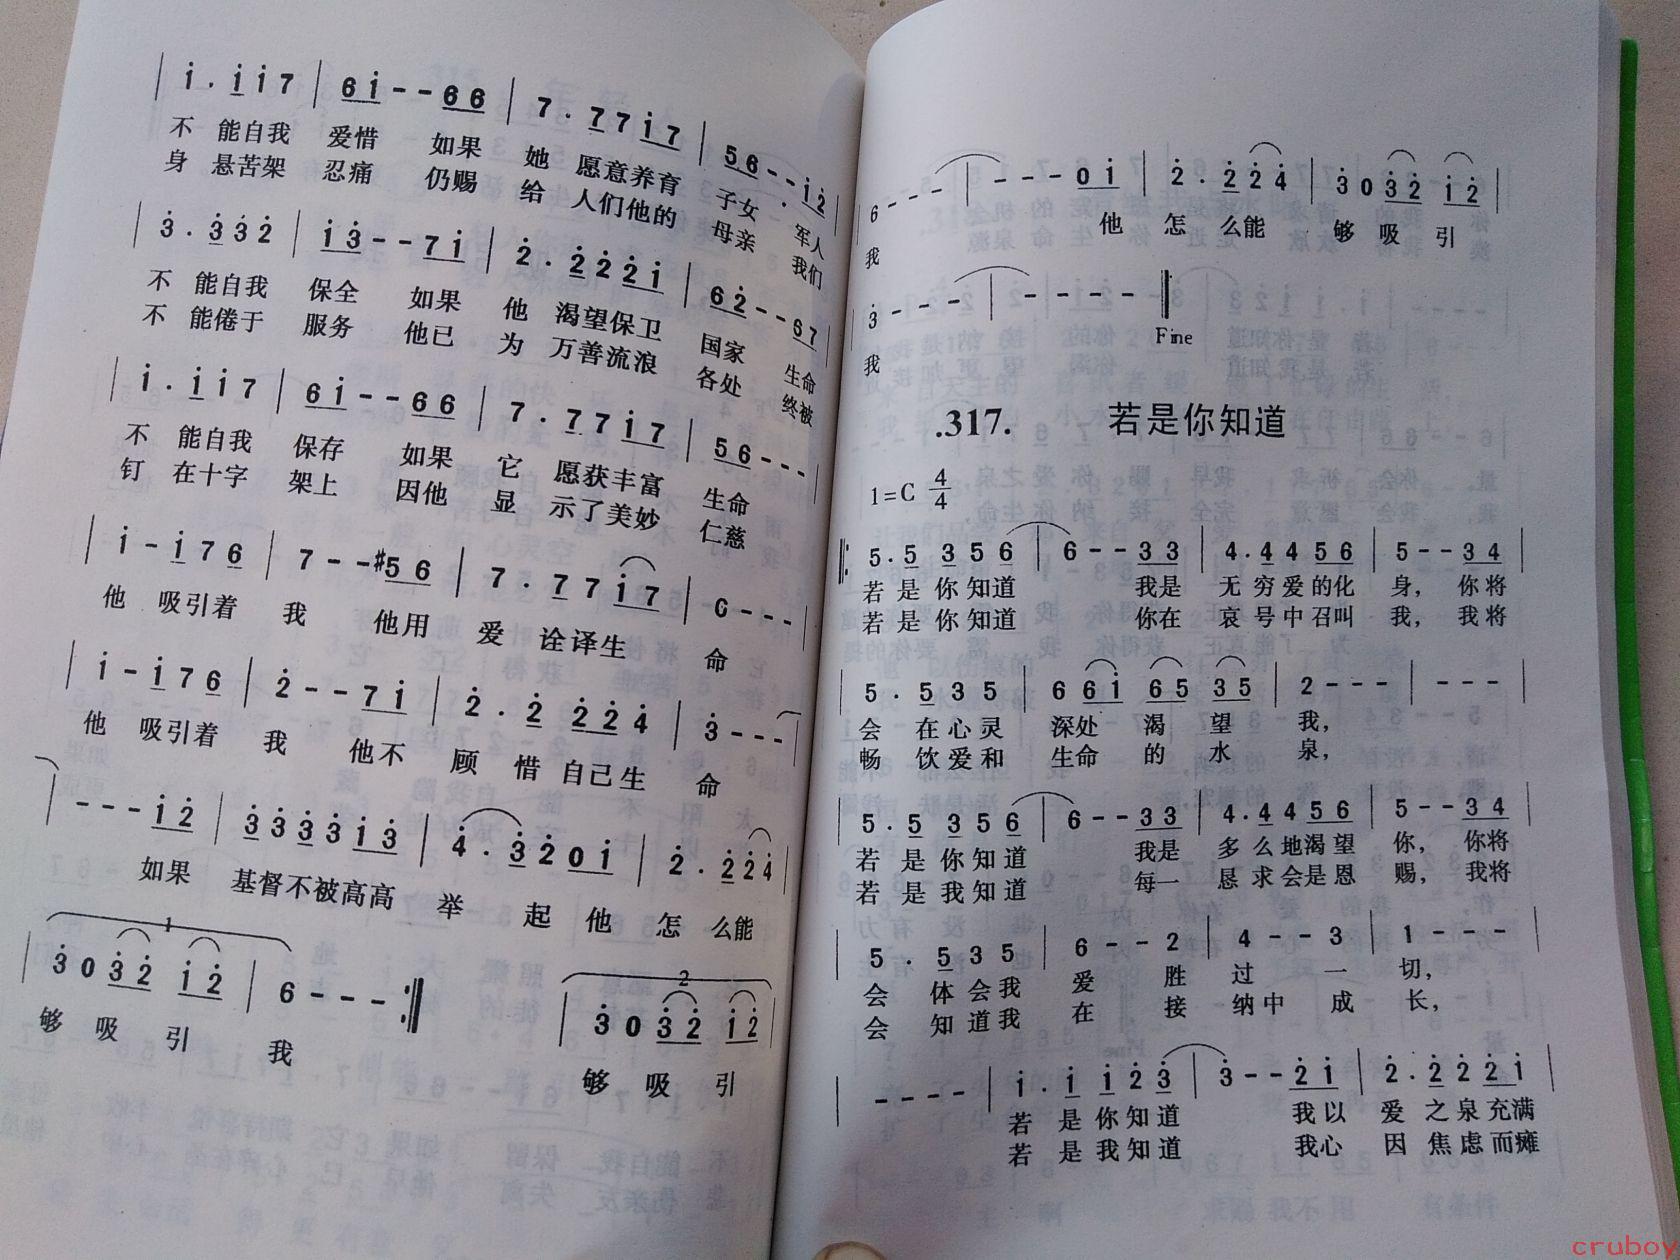 i . i i 7 | 6 i - - 6 6 | 7 . 7 7 i 7 | 5 6 - - i 2
不 能自我 爱惜 如果 她 愿意养育 子女 军人
身 悬苦架 忍痛 仍赐 给 人们他的 母亲 我们
3 . 3 3 2 | i 3 - - 7 i | 2 . 2 2 2 i | 6 2 - - 6 7
不 能自我 保全 如果 他 渴望保卫 国家 生命
不 能倦于 服务 他已 为 万善流浪 各处 终被
i . i i 7 | 6 i - - 6 6 | 7 . 7 7 i 7 | 5 6 - - -
不 能自我 保存 如果 它 愿获丰富 生命
钉 在十字 架上 因他 显 示了美妙 仁慈
i - i 7 6 | 7 - - #5 6 | 7 . 7 7 i 7 | 6 - - -
他 吸引着 我 他用 爱 诠译生 命
i - i 7 6 | 2 - - 7 i | 2 . 2 2 2 4 | 3 - - -
他 吸引着 我 他不 顾 惜自己生 命
- - - i 2 | 3 3 3 3 i 3 | 4 . 3 2 0 i | 2 . 2 2 4
如果 基督不被高高 举 起他 怎么能
1 2
3 0 3 2 i 2 | 6 - - - :|| 3 0 3 2 i 2
够 吸 引 我 够 吸 引
6 - - - | - - - 0 i | 2 . 2 2 4 | 3 0 3 2 i 2
我 他 怎 么能 够 吸 引
3 - - - | - - - - ||
我 Fine
.317. 若是你知道
1=C 4/4
||: 5 . 5 3 5 6 | 6 - - 3 3 | 4 . 4 4 5 6 | 5 - - 3 4 |
若 是 你 知道 我是 无 穷 爱 的化 身， 你将
若 是 你 知道 你在 哀 号 中 召叫 我， 我将
5 . 5 3 5 | 6 6 i 6 5 3 5 | 2 - - - | - - - - |
会 在心灵 深处 渴 望 我，
畅 饮爱和 生命 的 水 泉，
5 . 5 3 5 6 | 6 - - 3 3 | 4 . 4 4 5 6 | 5 - - 3 4 |
若 是 你 知 道 我是 多 么 地渴 望 你， 你将
若 是 我 知 道 每一 恳 求 会是 恩 赐， 我将
5 . 5 3 5 | 6 - - 2 | 4 - - 3 | 1 - - - |
会 体会我 爱 胜 过 一 切，
会 知道我 在 接 纳中 成 长，
- - - - | i . i i 2 3 | 3 - - 2 i | 2 . 2 2 2 i |
若 是 你 知 道 我以 爱 之 泉充满
若 是 我 知 道 我心 因 焦 虑而瘫
cruboy